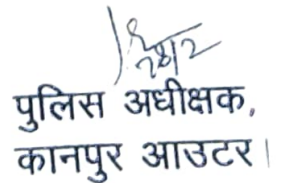 28/2
पुलिस अधीक्षक,
कानपुर आउटर।